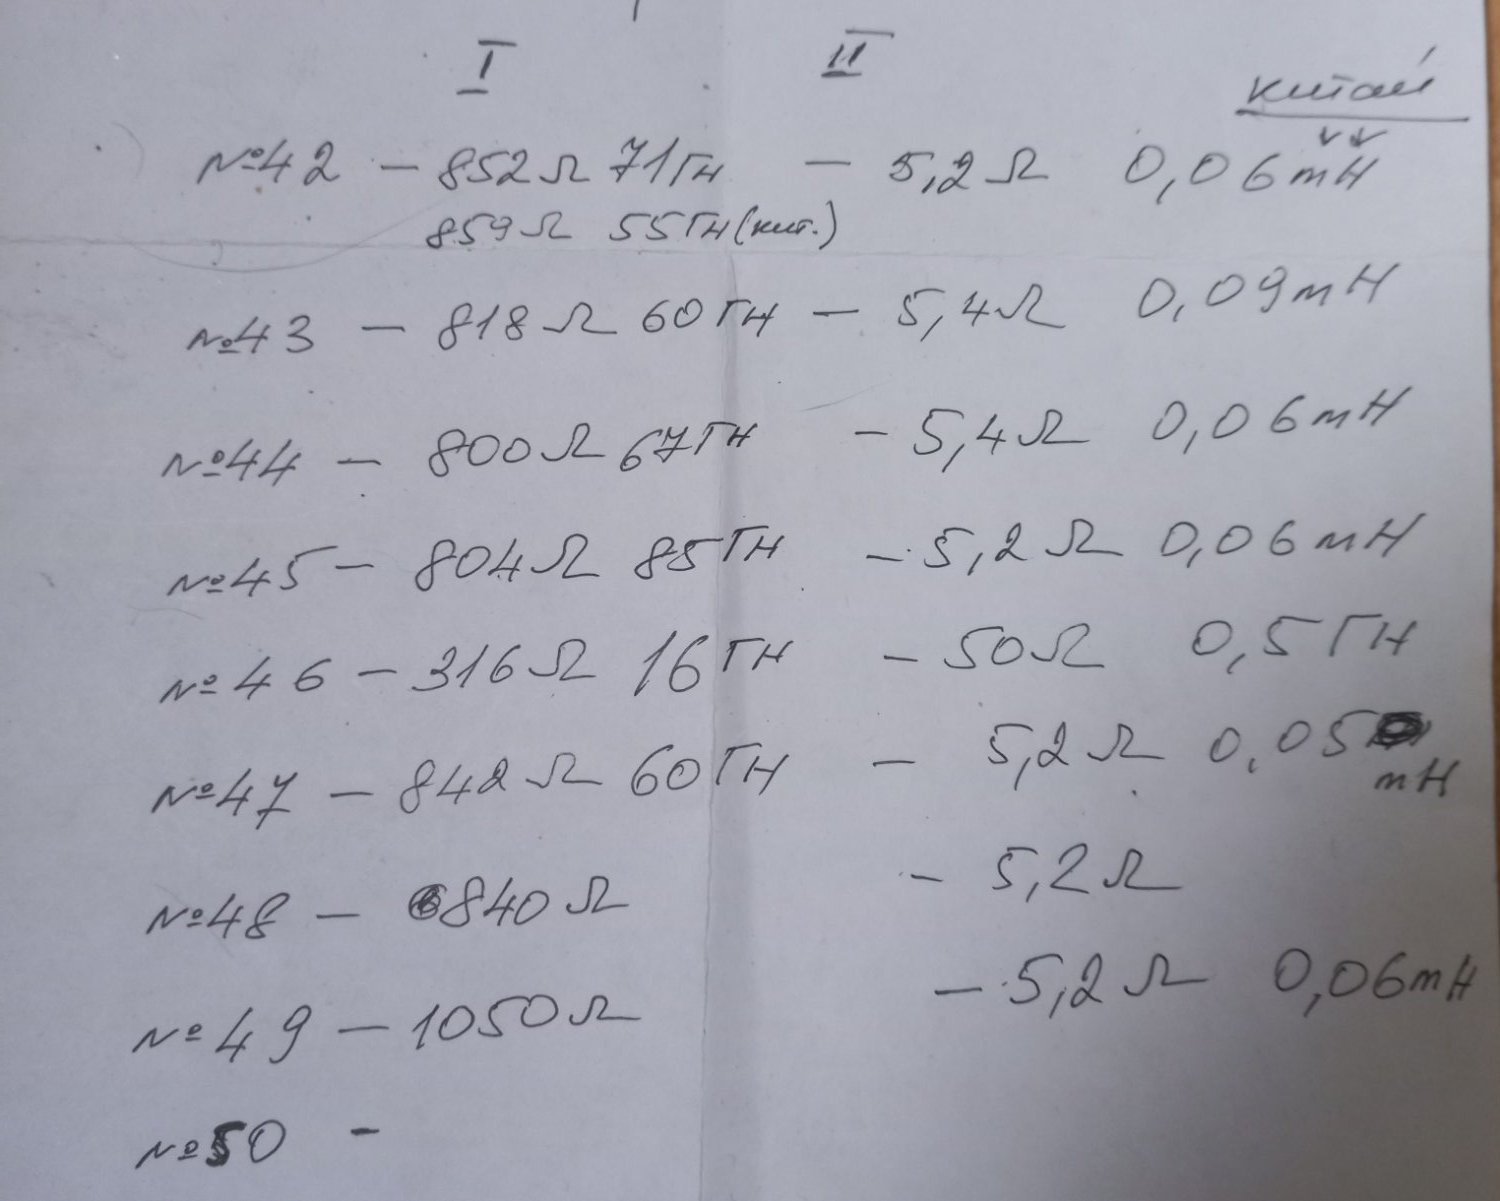 I II
китай
№42 – 852Ω 71Гн – 5,2Ω 0,06mH
859Ω 55Гн (кит.)
№43 – 818Ω 60Гн – 5,4Ω 0,09mH
№44 – 800Ω 67Гн – 5,4Ω 0,06mH
№45 – 804Ω 85Гн – 5,2Ω 0,06mH
№46 – 316Ω 16Гн – 50Ω 0,5Гн
№47 – 842Ω 60Гн – 5,2Ω 0,05
mH
№48 – 840Ω – 5,2Ω
№49 – 1050Ω – 5,2Ω 0,06mH
№50 –